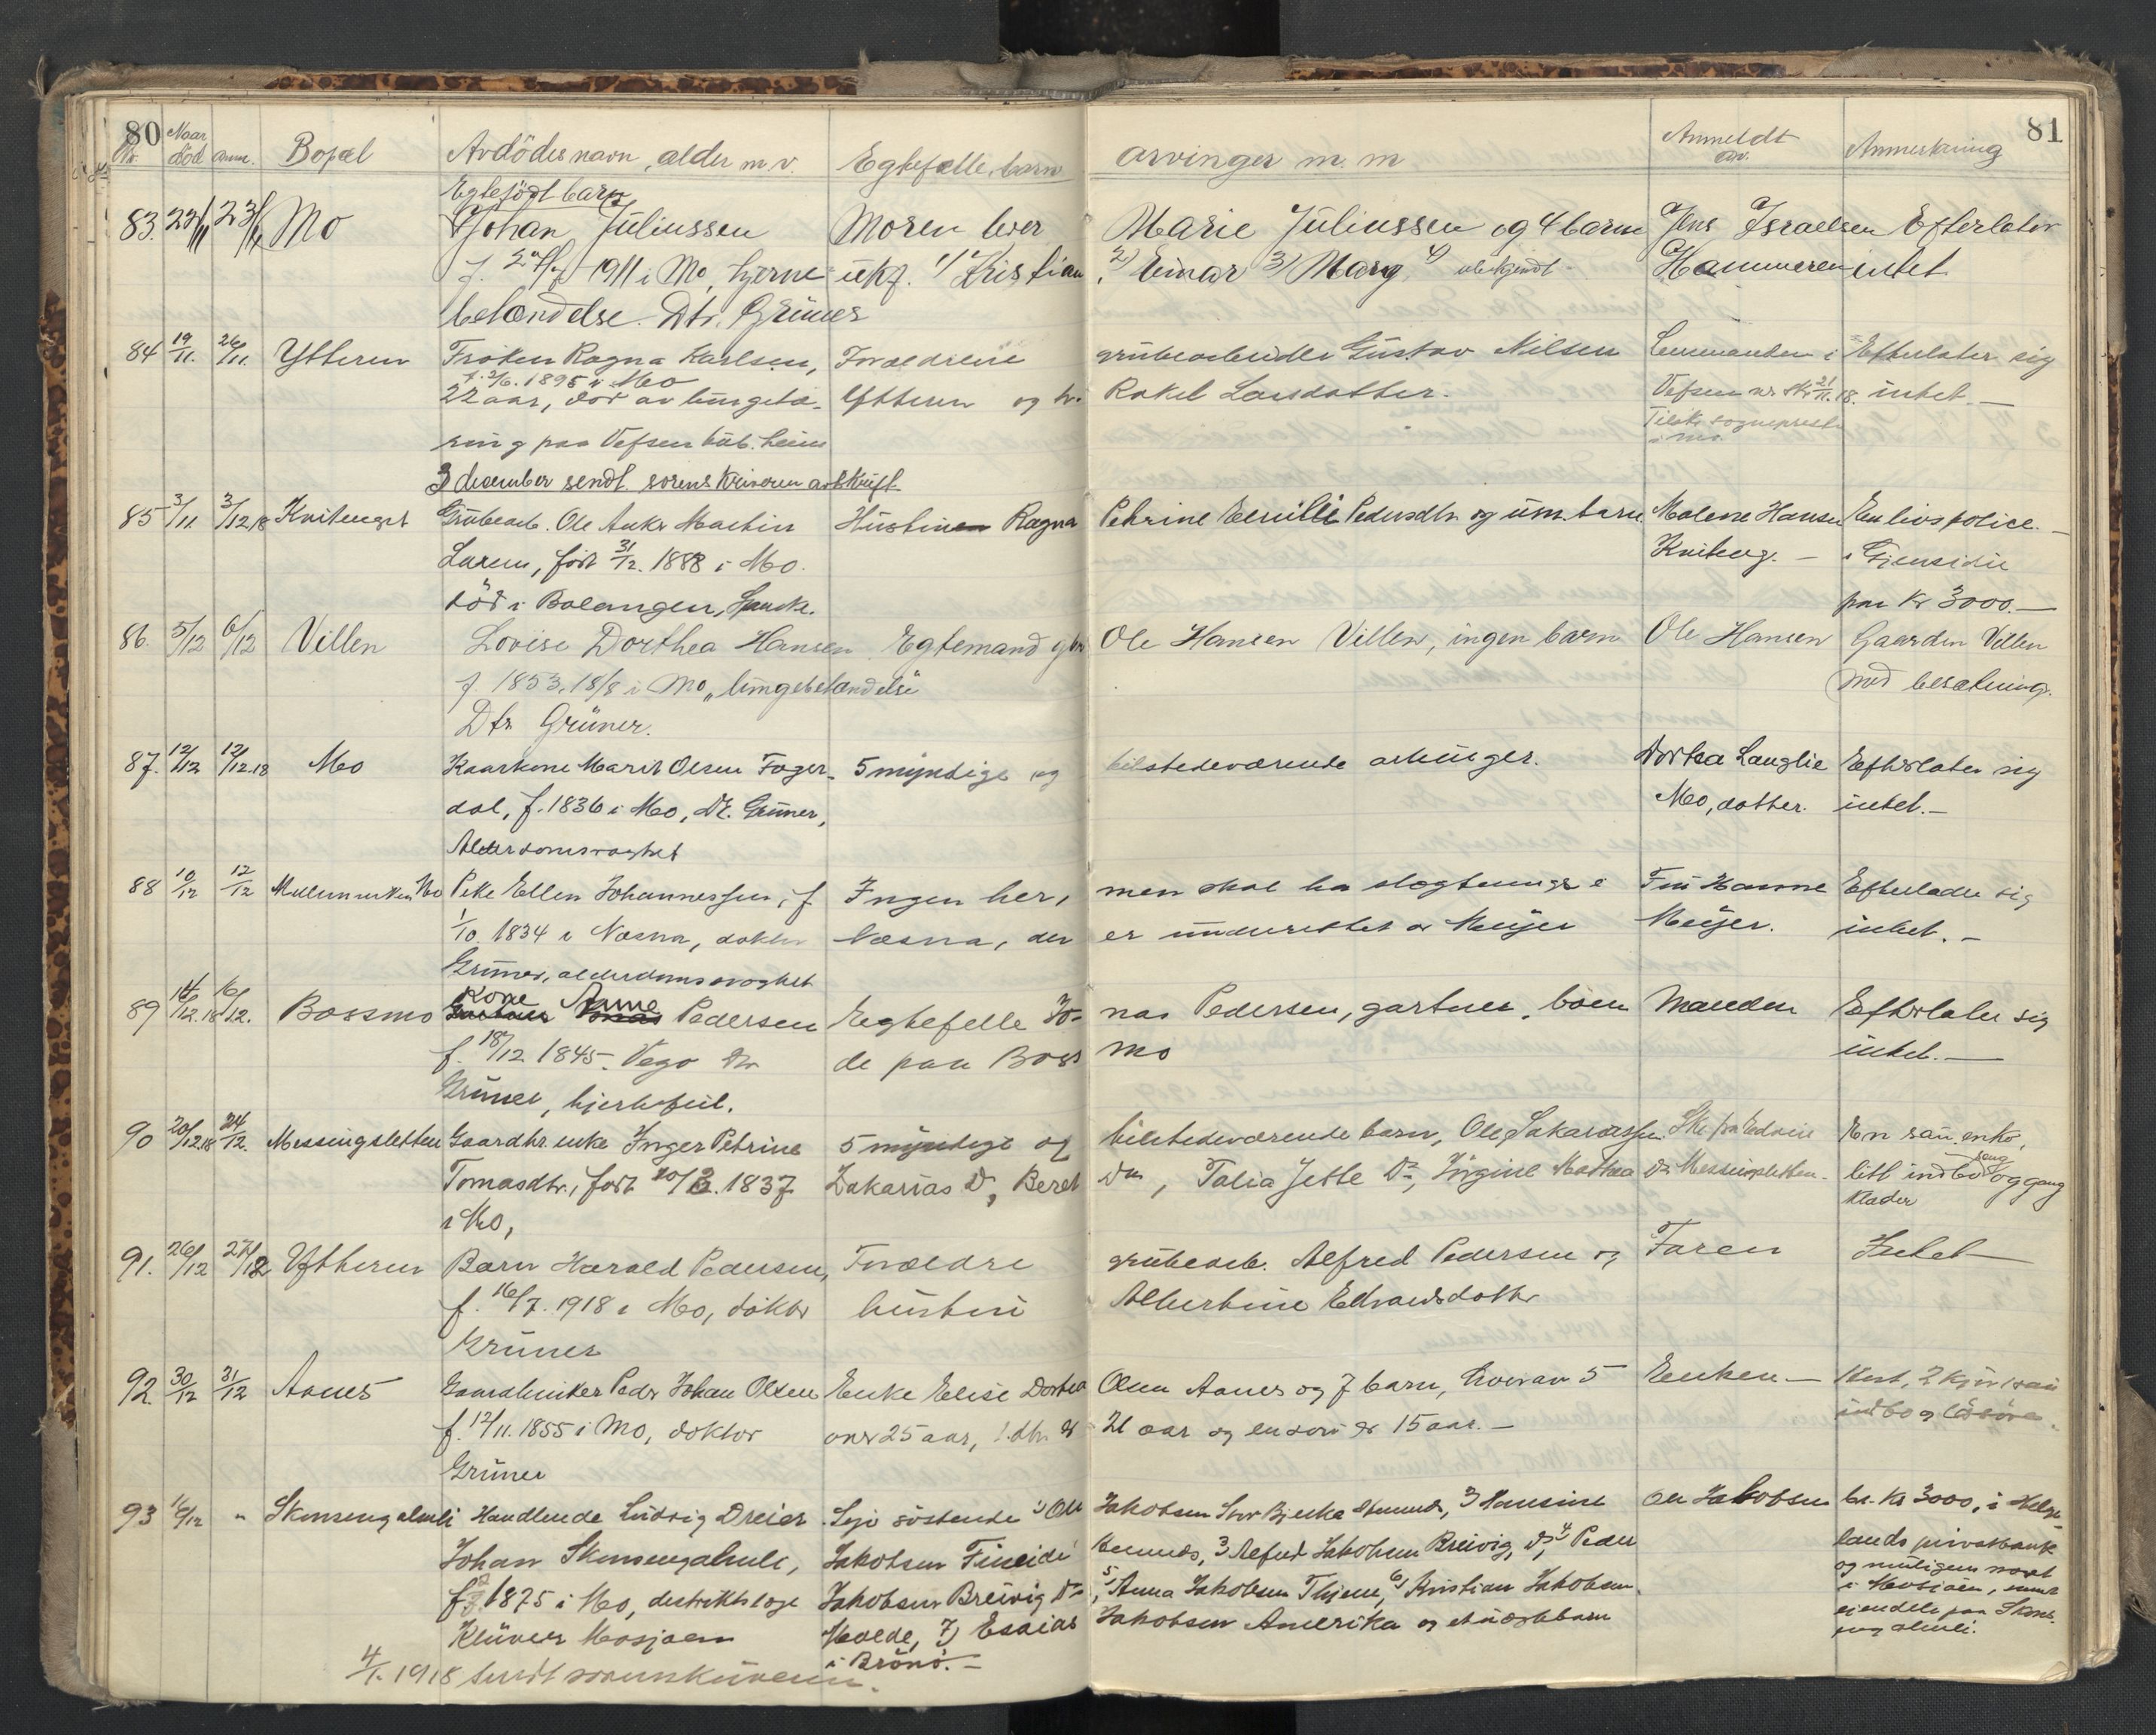 80 81
Nr. Naar död anm. Bopæl Avdödes navn, alder m. v. Egtefælle, barn arvinger m. m Anmeldt av. Anmerkning
Egtefödt barn
83. 22/11 23/11 Mo Johan Juliussen Moren lever Marie Juliussen og 4 barn Jens Israelsen Efterlater
f. 1911 i Mo, hjerne- ukf. 1) Kristian 2) Einar 3) Marg 4) ubekjendt Hammeren intet
betændelse. Dtr. Grüner
84 19/11. 26/11. Ytteren Fröken Ragna Karlsen, Forældrene grubearbeider Gustav Nilsen Lensmanden i Efterlater sig
f. 2/6. 1895 i Mo
22 aar, död av lungetæ- Ytteren og h. Rakel Larsdatter. Vefsen skr 21/11. 18. intet.
ring paa Vefsen tub. heim Tilsk. sogneprest i Mo.
3 december sendt sorenskriveren avskrift
85 3/11 3/12 18 Kvitenget Grubearb. Ole Anker Martin Hustruen Ragna Petrine Emilie Pedersdtr. og um. barn Malene Hansen En livspolice.
Larsen, född 31/12. 1888 i Mo. Kviteng. i Gjensidie
död i Balangen, Spansk. paa Kr 3000.
86. 5/12 6/12 Villen Lovise Dorthea Hansen Egtemand gbr Ole Hansen Villen, ingen barn Ole Hansen Gaarden Villen
f. 1853. 18/8 i Mo „ lungebetændelse med besætning.
Dtr Grüner.
87. 12/12 12/12.18 Mo Kaarkone Marit Olsen Fager- 5 myndige og tilstedeværende arvinger. Dortea Langlie Efterlater sig
dal, f. 1836 i Mo, Dr. Grüner, Mo, datter. intet.
Alderdomssvaghet
88 10/12 12/12 Mo Pike Ellen Johannessen, f Ingen her, men skal ha slegtninge i Fru Hanne Efterlader sig
1/10. 1834 i Næsna, doktor Næsna, der er underrettet av Meijer Meijer. intet.
Grüner, alderdomssvaghet
89 14/12.18 16/12. Bossmo Kone Anne Pedersen Egtefelle Jo- nas Pedersen, gartner, boen Manden Efterlater sig
f. 18/12 1845. Vego Dr de paa Boss mo intet.
Grüner, hjertefeil.
90 20/12.18 24/12. Messingsletten Gaardbr. enke Inger Petrine 5 myndige og tilstedeværende barn, Ole Sakariassen En enko,
Tomasdtr, född 20/3. 1837 Zakarias Do, Beret Do, Talia Jette Do, Jörgine Mathea Do Messingsletten. litt indbo seng og gang
i Mo, klæder
91. 26/12 27/12 Ytteren Barn Harald Pedersen, Forældre grubearb. Alfred Pedersen og Faren Intet
f. 16/7. 1918 i Mo, doktor hustru Albertine Edvardsdatter
Grüner
92. 30/12 31/12 Aanes Gaardbruker Peder Johan Olsen Enke Elise Dortea Olsen Aanes og 7 barn, hvorav 5 Enken Hest, 2 kjör, sau
f. 12/11. 1855 i Mo, doktor over 25 aar, 1. dtr. 21 aar og en sön er 15 aar. indbo og lösöre.
Grüner
93 16/12 " Skonsengalmli Handlende Ludvig Dreier Syv söskende 1) Ole Jakobsen Stor Bjerka Hemnes, 2) Hansine Ole Jakobsen kr. 3000, i Helge-
Johan Skonsengalmli, Jakobsen Fineide Hemnes, 3 Alfred Jakobsen Breivig, Do, 4) Peder lands privatbank
f. 1875 i Mo, distriktslæge Jakobsen Breivig Do, 5) Anna Jakobsen Thjem, 6) Kristian Jakobsen og muligens noget i Mosjöen, samt
Klüwer Mosjöen Molde, 7) Esaias Jakobsen Amerika og et nöstebarn eiendele paa Skons-
i Brönö. eng almli.
4/1. 1918 sendt sorenskriveren.